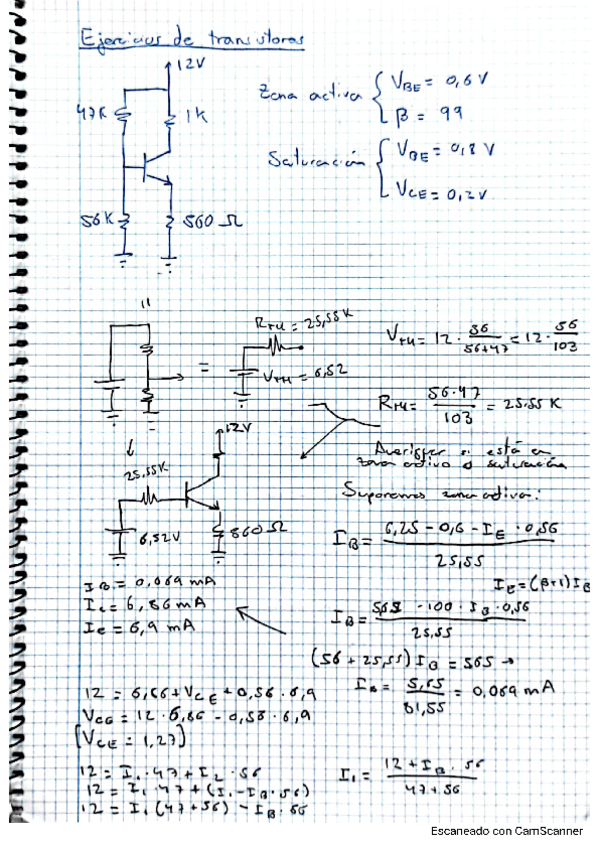 Ejercicios de transistores
12V
47K
1K
56K
560 Ω
Zona activa { VBE = 0,6 V
β = 99
Saturación { VBE = 0,8 V
VCE = 0,2V
RTH = 25,55K
=
VTH = 6,52
VTH = 12 · 56/(56+47) = 12 · 56/103
RTH = 56·47/103 = 25.55 K
Averiguar si está en
zona activa o saturación
Suporemos zona activa:
12V
25,55K
6,52V
560 Ω
IB = (6,25 - 0,6 - IE · 0,56)/25,55
IE = (β+1) IB
IB = 0,069 mA
Ic = 6,86 mA
Ie = 6,9 mA
-100 · IB · 0,56
25,55
(56 + 25,55) IB = 565 →
IB = 5,65/81,55 = 0,069 mA
12 = 6,86 + VCE + 0,56 · 6,9
[VCE = 1,27]
12 = I1 · 47 + I2 · 56
12 = I1 · 47 + (I1 - IB · 56)
12 = I1 (47 + 56) - IB · 56
I1 = (12 + IB · 56)/(47 + 56)
Escaneado con CamScanner